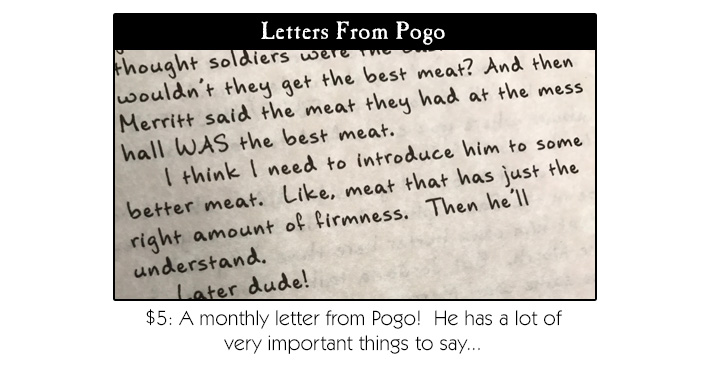 Letters From Pogo
thought soldiers were the
wouldn't they get the best meat? And then
Merritt said the meat they had at the mess
hall WAS the best meat.
I think I need to introduce him to some
better meat. Like, meat that has just the
right amount of firmness. Then he'll
understand.
Later dude!
$5: A monthly letter from Pogo! He has a lot of
very important things to say...